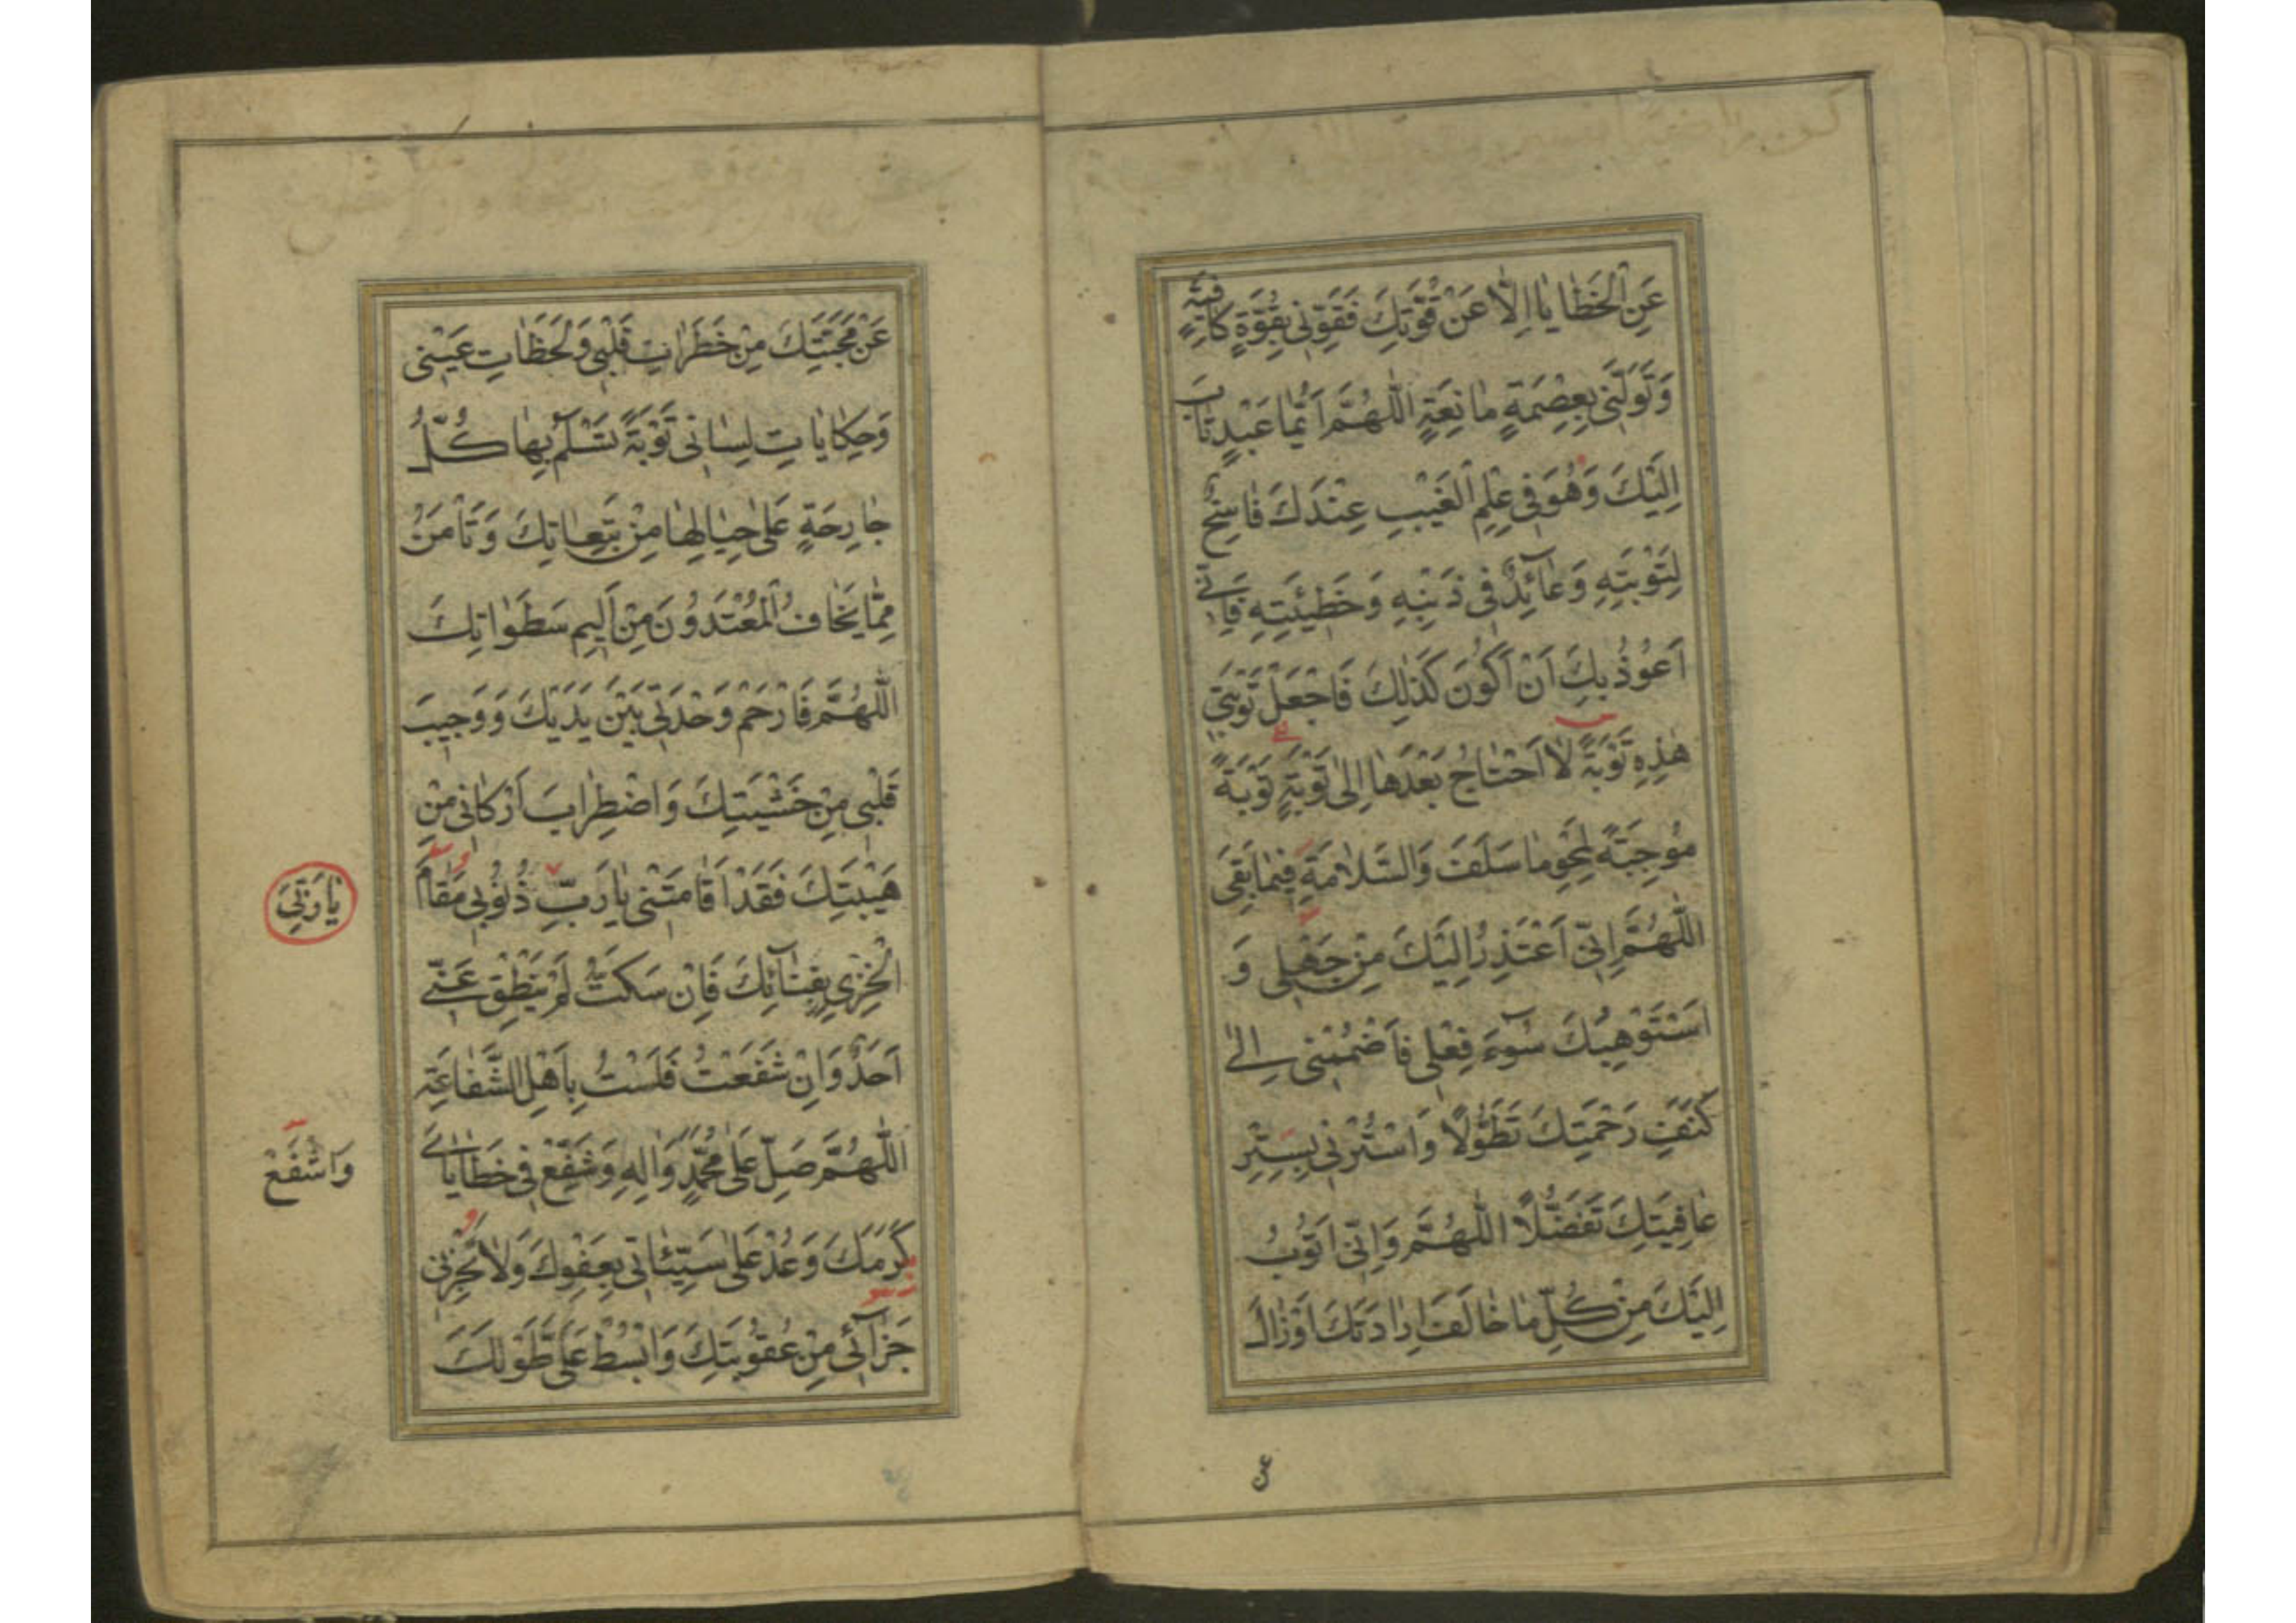 عَنِ الْخَطٰايٰا اِلّٰا عَنْ قُوَّتِكَ فَقَوِّنِى بِقُوَّةٍ كٰافِيَةٍ
وَتَوَلَّنِى بِعِصْمَةٍ مٰانِعَةٍ اَللّٰهُمَّ اَيُّمٰا عَبْدٍ تٰابَ
اِلَيْكَ وَهُوَ فِى عِلْمِ الْغَيْبِ عِنْدَكَ فٰاسِخٌ
لِتَوْبَتِهِ وَعٰآئِدٌ فِى ذَنْبِهِ وَخَطِيئَتِهِ فَاِنِّى
اَعُوذُ بِكَ اَنْ اَكُونَ كَذٰلِكَ فَاجْعَلْ تَوْبَتِى
هٰذِهِ تَوْبَةً لٰا اَحْتٰاجُ بَعْدَهٰا اِلىٰ تَوْبَةٍ تَوْبَةً
مُوجِبَةً لِمَحْوِ مٰا سَلَفَ وَالسَّلٰامَةِ فِيمٰا بَقِىَ
اَللّٰهُمَّ اِنِّى اَعْتَذِرُ اِلَيْكَ مِنْ جَهْلِى وَ
اَسْتَوْهِبُكَ سُوٓءَ فِعْلِى فَاضْمُمْنِى اِلىٰ
كَنَفِ رَحْمَتِكَ تَطَوُّلاً وَاسْتُرْنِى بِسِتْرِ
عٰافِيَتِكَ تَفَضُّلاً اَللّٰهُمَّ وَاِنِّى اَتُوبُ
اِلَيْكَ مِنْ كُلِّ مٰا خٰالَفَ اِرٰادَتَكَ اَوْ زٰالَ
ع
عَنْ مَحَبَّتِكَ مِنْ خَطَرٰاتِ قَلْبِى وَلَحَظٰاتِ عَيْنِى
وَحِكٰايٰاتِ لِسٰانِى تَوْبَةً تَسْلَمُ بِهٰا كُلُّ
جٰارِحَةٍ عَلىٰ حِيٰالِهٰا مِنْ تَبِعٰاتِكَ وَتَأْمَنُ
مِمّٰا يَخٰافُ الْمُعْتَدُونَ مِنْ اَلِيمِ سَطَوٰاتِكَ
اَللّٰهُمَّ فَارْحَمْ وَحْدَتِى بَيْنَ يَدَيْكَ وَوَجِيبَ
قَلْبِى مِنْ خَشْيَتِكَ وَاضْطِرٰابَ اَرْكٰانِى مِنْ
هَيْبَتِكَ فَقَدْ اَقٰامَتْنِى يٰا رَبِّ ذُنُوبِى مَقٰامَ
يٰا رَبِّىَ
الْخِزْىِ بِفِنٰآئِكَ فَاِنْ سَكَتُّ لَمْ يَنْطِقْ عَنِّى
اَحَدٌ وَاِنْ شَفَعْتُ فَلَسْتُ بِاَهْلِ الشَّفٰاعَةِ
اَللّٰهُمَّ صَلِّ عَلىٰ مُحَمَّدٍ وَاٰلِهِ وَشَفِّعْ فِى خَطٰايٰاىَ
وَاشْفَعْ
كَرَمَكَ وَعُدْ عَلىٰ سَيِّئٰاتِى بِعَفْوِكَ وَلٰا تَجْزِنِى
جَزٰآئِى مِنْ عُقُوبَتِكَ وَابْسُطْ عَلَىَّ طَوْلَكَ